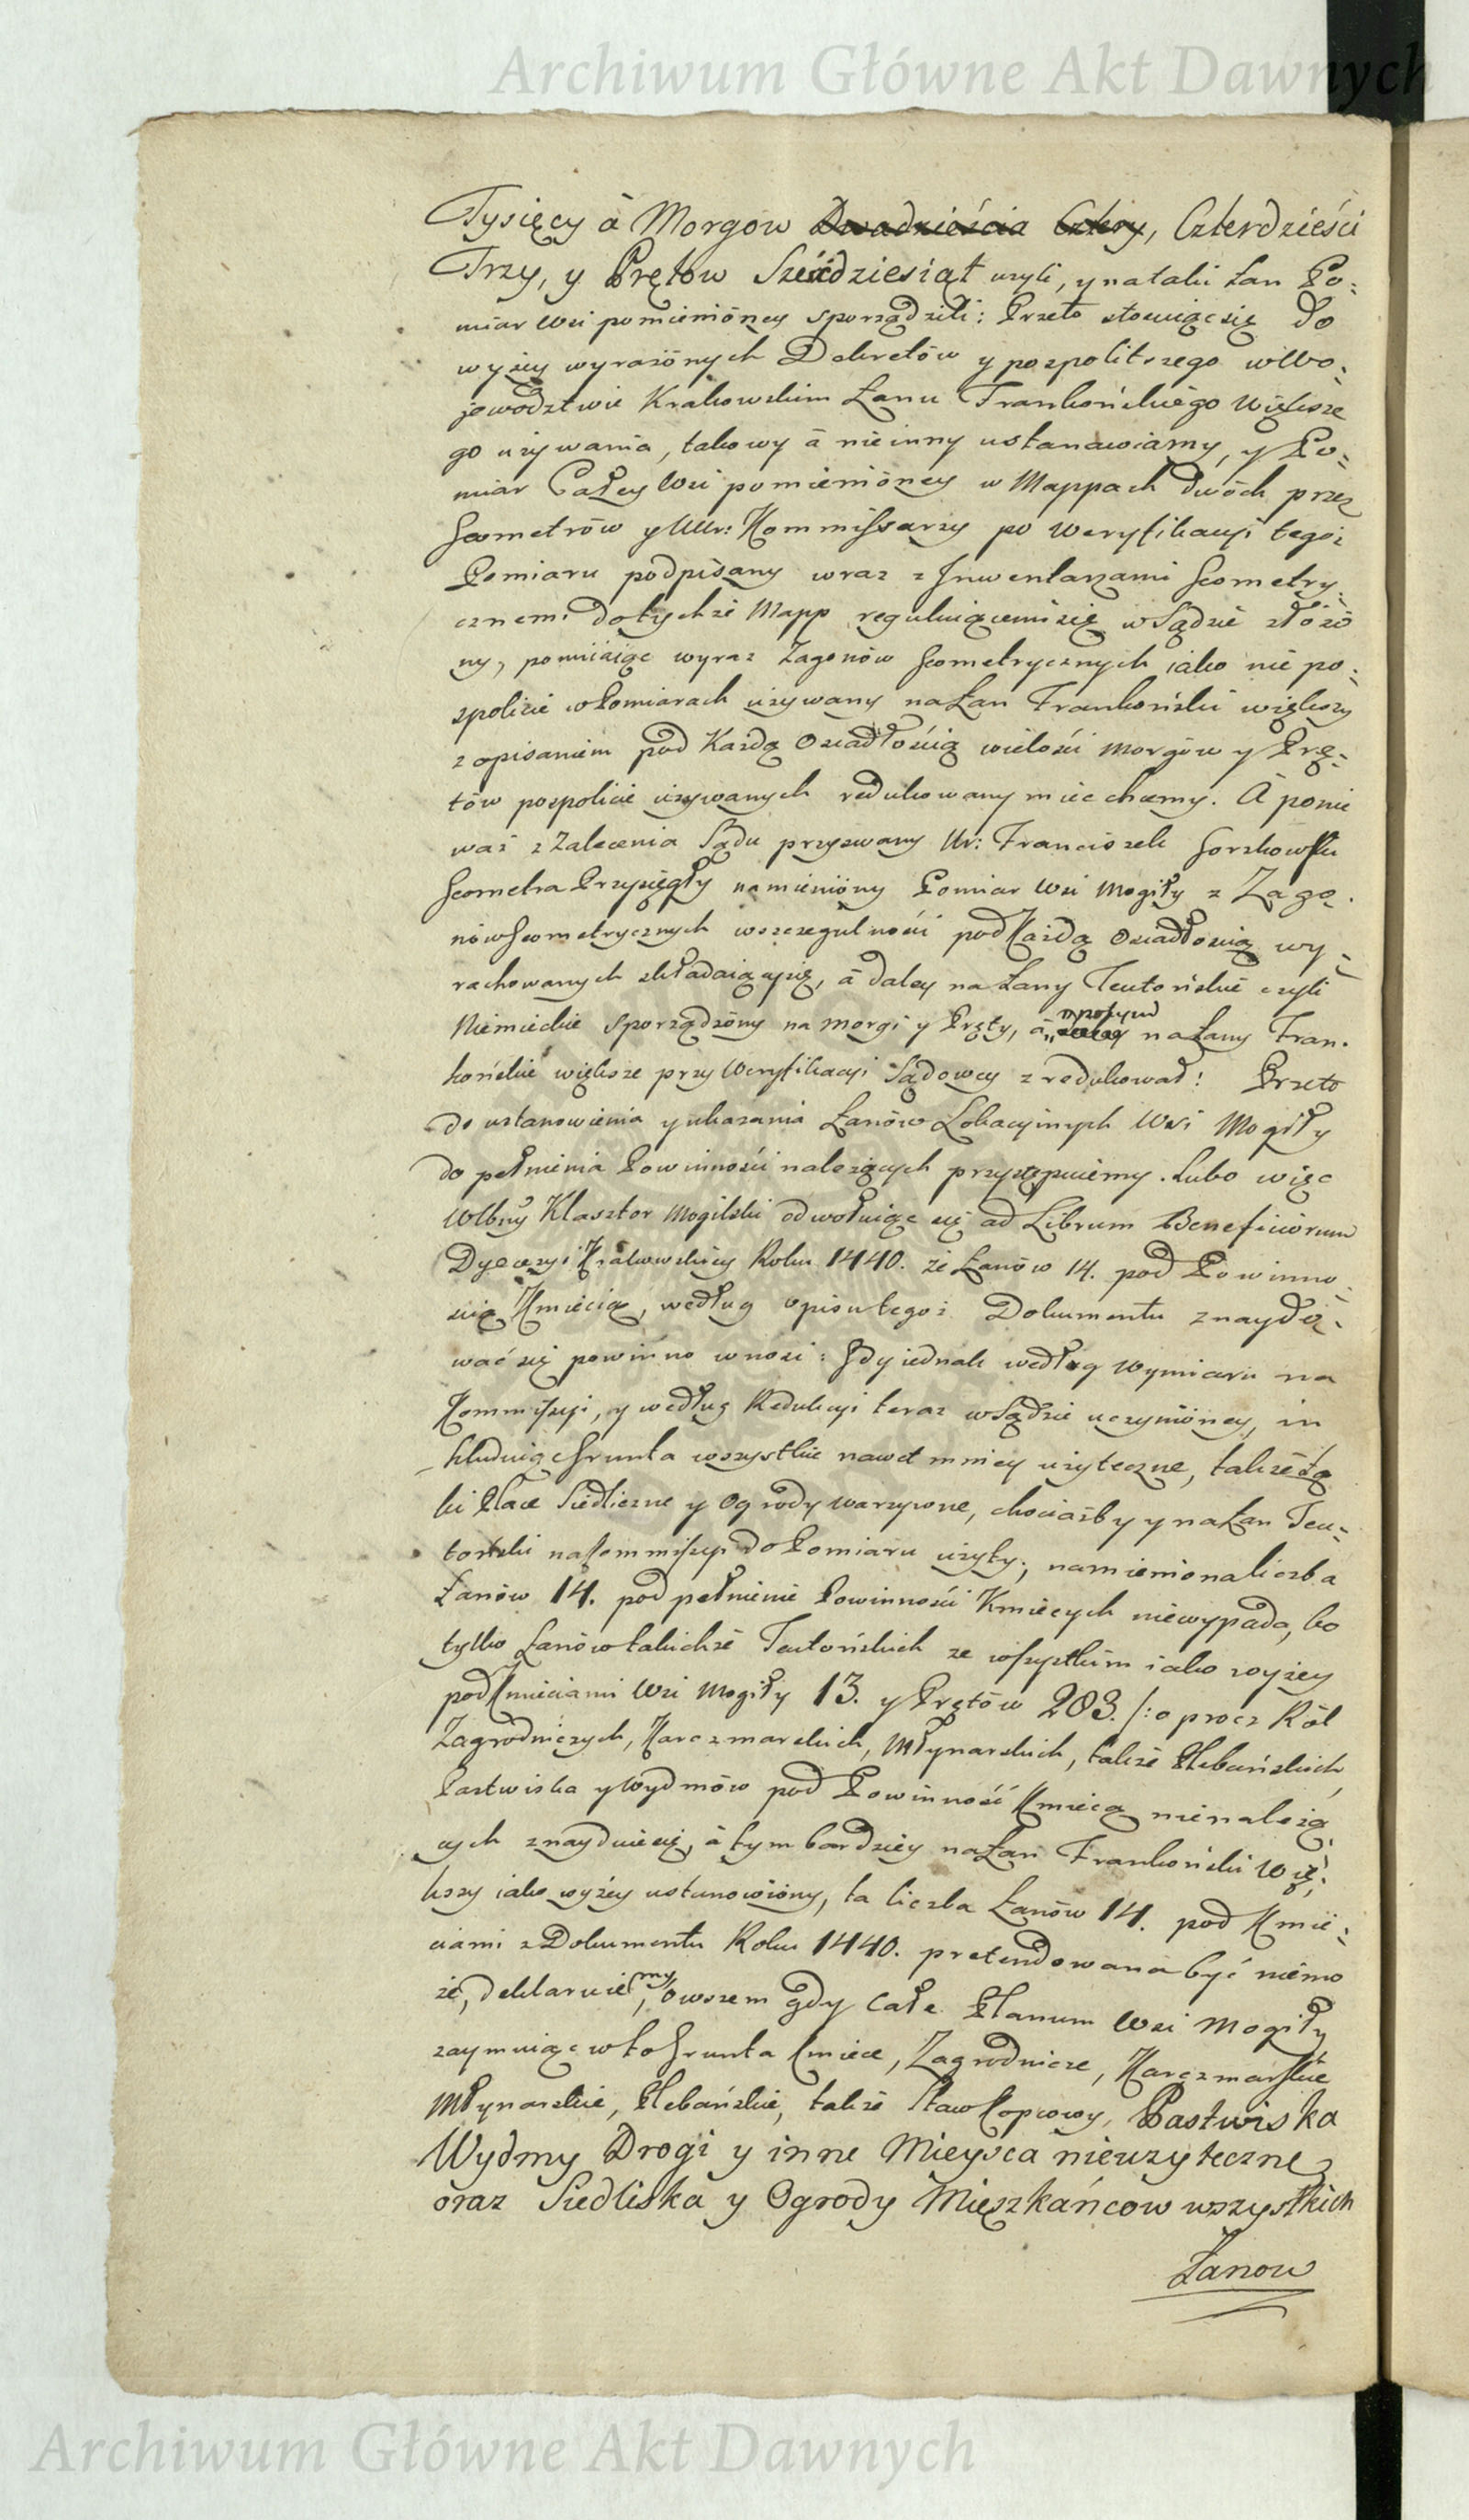 Archiwum Główne Akt Dawnych
Tysięcy à Morgow Dwadzieścia Cztery, Czterdzieści
Trzy, y Prętow Sześdziesiąt uzyli, y na taki Łan Po-
miar Wsi pomienióney sporządzili: Przeto stosuiąc się do
wyżey wyrażónych Dekretów y pospolitszego w Wo-
jewodztwie Krakowskim Łanu Frankońskiego Większe
go używania, takowy à nie inny ustanawiamy, y Po-
miar Całey Wsi pomienióney w Mappach dwóch przez
Geometrów y Urr: Kommissarzy po Weryfikacyi tegoż
Pomiaru podpisany wraz z Inwentarzami Geometry-
cznemi do tychże Mapp reguluiącemi się w Sądzie złożo
ny, pomiiaiąc wyraz Zagonów Geometrycznych iako nie po-
spolicie w Pomiarach używany na Łan Frankoński większy
z opisaniem pod Każdą Osiadłością wielości Morgów y Prę-
tów pospolicie używanych redukowany miec chcemy. À ponie
waż z Zalecenia Sądu przyzwany Ur: Franciszek Gorzkowski
Geometra Przysięgły namieniony Pomiar Wsi Mogiły z Zago-
nów Geometrycznych w szczegulności pod Każdą Osiadłością wy-
rachowanych składaiący się, à daley na Łany Teutońskie czyli
Niemieckie sporządzóny na Morgi y Pręty, à napotym na Łany Fran-
końskie większe przy Weryfikacyi Sądowey zredukował: Przeto
do ustanowienia y ukazania Łanów Lokacyinych Wsi Mogiły
do pełnienia Powinności należących przystępuiemy. Lubo więc
Wlbny Klasztor Mogilski odwołuiąc się ad Librum Beneficiorum
Dyecezyi Krakowskiey Roku 1440. że Łanów 14. pod Powinno-
scią Kmiecią, według opisu tegoż Dokumentu znaydo-
wać się powinno wnosi: Gdy iednak według Wymiaru na
Kommissyi, y według Redukcyi teraz w Sądzie uczynióney, in
kluduiąc Grunta wszystkie nawet mniey użyteczne, także Łą
ki Place Siedliczne y Ogrody warzywne, chociażby y na Łan Teu-
toński na Kommissyi do Pomiaru użyty, namieniona liczba
Łanów 14. pod pełnienie Powinności Kmiecych niewypada, bo
tylko Łanów takichże Teutońskich ze wszystkim iako wyżey
pod Kmieciami Wsi Mogiły 13. y Prętów 203. /: oprocz Ról
Zagrodniczych, Karczmarskich, Młynarskich, także Plebańskich,
Pastwiska y Wydmów pod Powinność Kmiecą nienależą
cych znayduie się, à tym bardziey na Łan Frankoński Wię-
kszy iako wyżey ustanowióny, ta liczba Łanów 14. pod Kmie-
ciami z Dokumentu Roku 1440. pretendowana być niemo
że, deklaruiemy, owszem gdy Całe Planum Wsi Mogiły
zaymuiąc w to Grunta Kmiece, Zagrodnicze, Karczmarskie
Młynarskie, Plebańskie, także Staw Kopcowy, Pastwiska
Wydmy Drogi y inne Mieysca nieuzyteczne
oraz Siedliska y Ogrody Mieszkańcow wszystkich
Łanow
Archiwum Główne Akt Dawnych